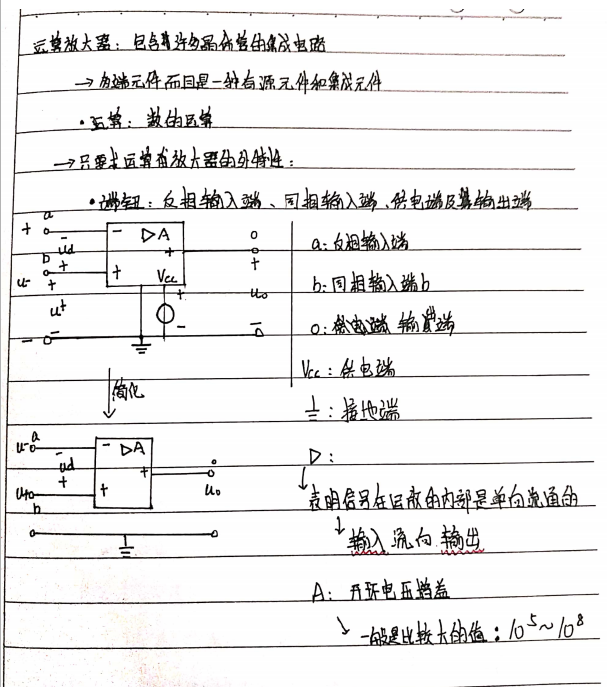 运算放大器：包含着许多晶体管的集成电路
→ 多端元件而且是一种有源元件和集成元件
• 运算：数的运算
→ 只要求运算放大器的外特性：
• 端钮：反相输入端、同相输入端、供电端及输出端
a
+ - ▷A o
ud +
b + + Vcc +
u- + u+ + uo
- - -
a：反相输入端
b：同相输入端b
o：输出端
Vcc：供电端
⏚：接地端
简化
a
u- - - ▷A
ud + o
+ + uo
u+
b
▷：
↓表明信号在运放的内部是单向流通的
↓输入流向输出
A：开环电压增益
↓一般是比较大的值：10⁵~10⁸